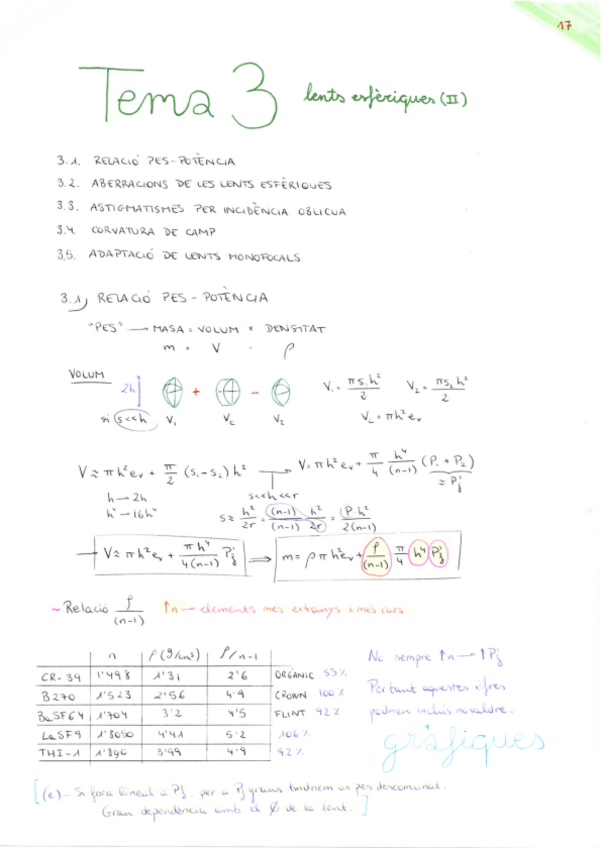 17
Tema 3 lents esfèriques (II)
3.1. RELACIÓ PES-POTÈNCIA
3.2. ABERRACIONS DE LES LENTS ESFÈRIQUES
3.3. ASTIGMATISMES PER INCIDÈNCIA OBLICUA
3.4. CORVATURA DE CAMP
3.5. ADAPTACIÓ DE LENTS MONOFOCALS
3.1) RELACIÓ PES-POTÈNCIA
"PES" → MASA = VOLUM × DENSITAT
m = V · ρ
VOLUM
2h + − V₁ = πs₁h²/2 V₂ = πs₂h²/2
si s<<h V₁ Vc V₂ Vc = πh²ev
V ≈ πh²ev + π/2 (s₁-s₂)h² → V = πh²ev + π/4 h⁴/(n-1) (P₁ + P₂)
≈ P'j
h → 2h s<<h<<r
h⁴ → 16h⁴ s ≈ h²/2r = (n-1)/(n-1) h²/2r = P·h²/2(n-1)
→ V ≈ πh²ev + πh⁴/4(n-1) P'j ⇒ m = ρπh²ev + ρ/(n-1) π/4 h⁴ P'j
~ Relació ρ/(n-1) ↑n → elements més estranys i més cars
n ρ(g/cm³) ρ/n-1
CR-39 1'498 1'31 2'6 ORGÀNIC 55%
B270 1'523 2'56 4'9 CROWN 100%
BaSF64 1'704 3'2 4'5 FLINT 92%
LaSF9 1'8050 4'41 5'2 106%
THI-1 1'890 3'99 4'9 92%
No sempre ↑n → ↑Pj
Per tant aquestes xifres
podrien inclús no valdre.
gràfiques
[(e) - Si fora lineal a Pj, per a Pj grans tindriem un pes descomunal.
Gran dependència amb el Ø de la lent.]